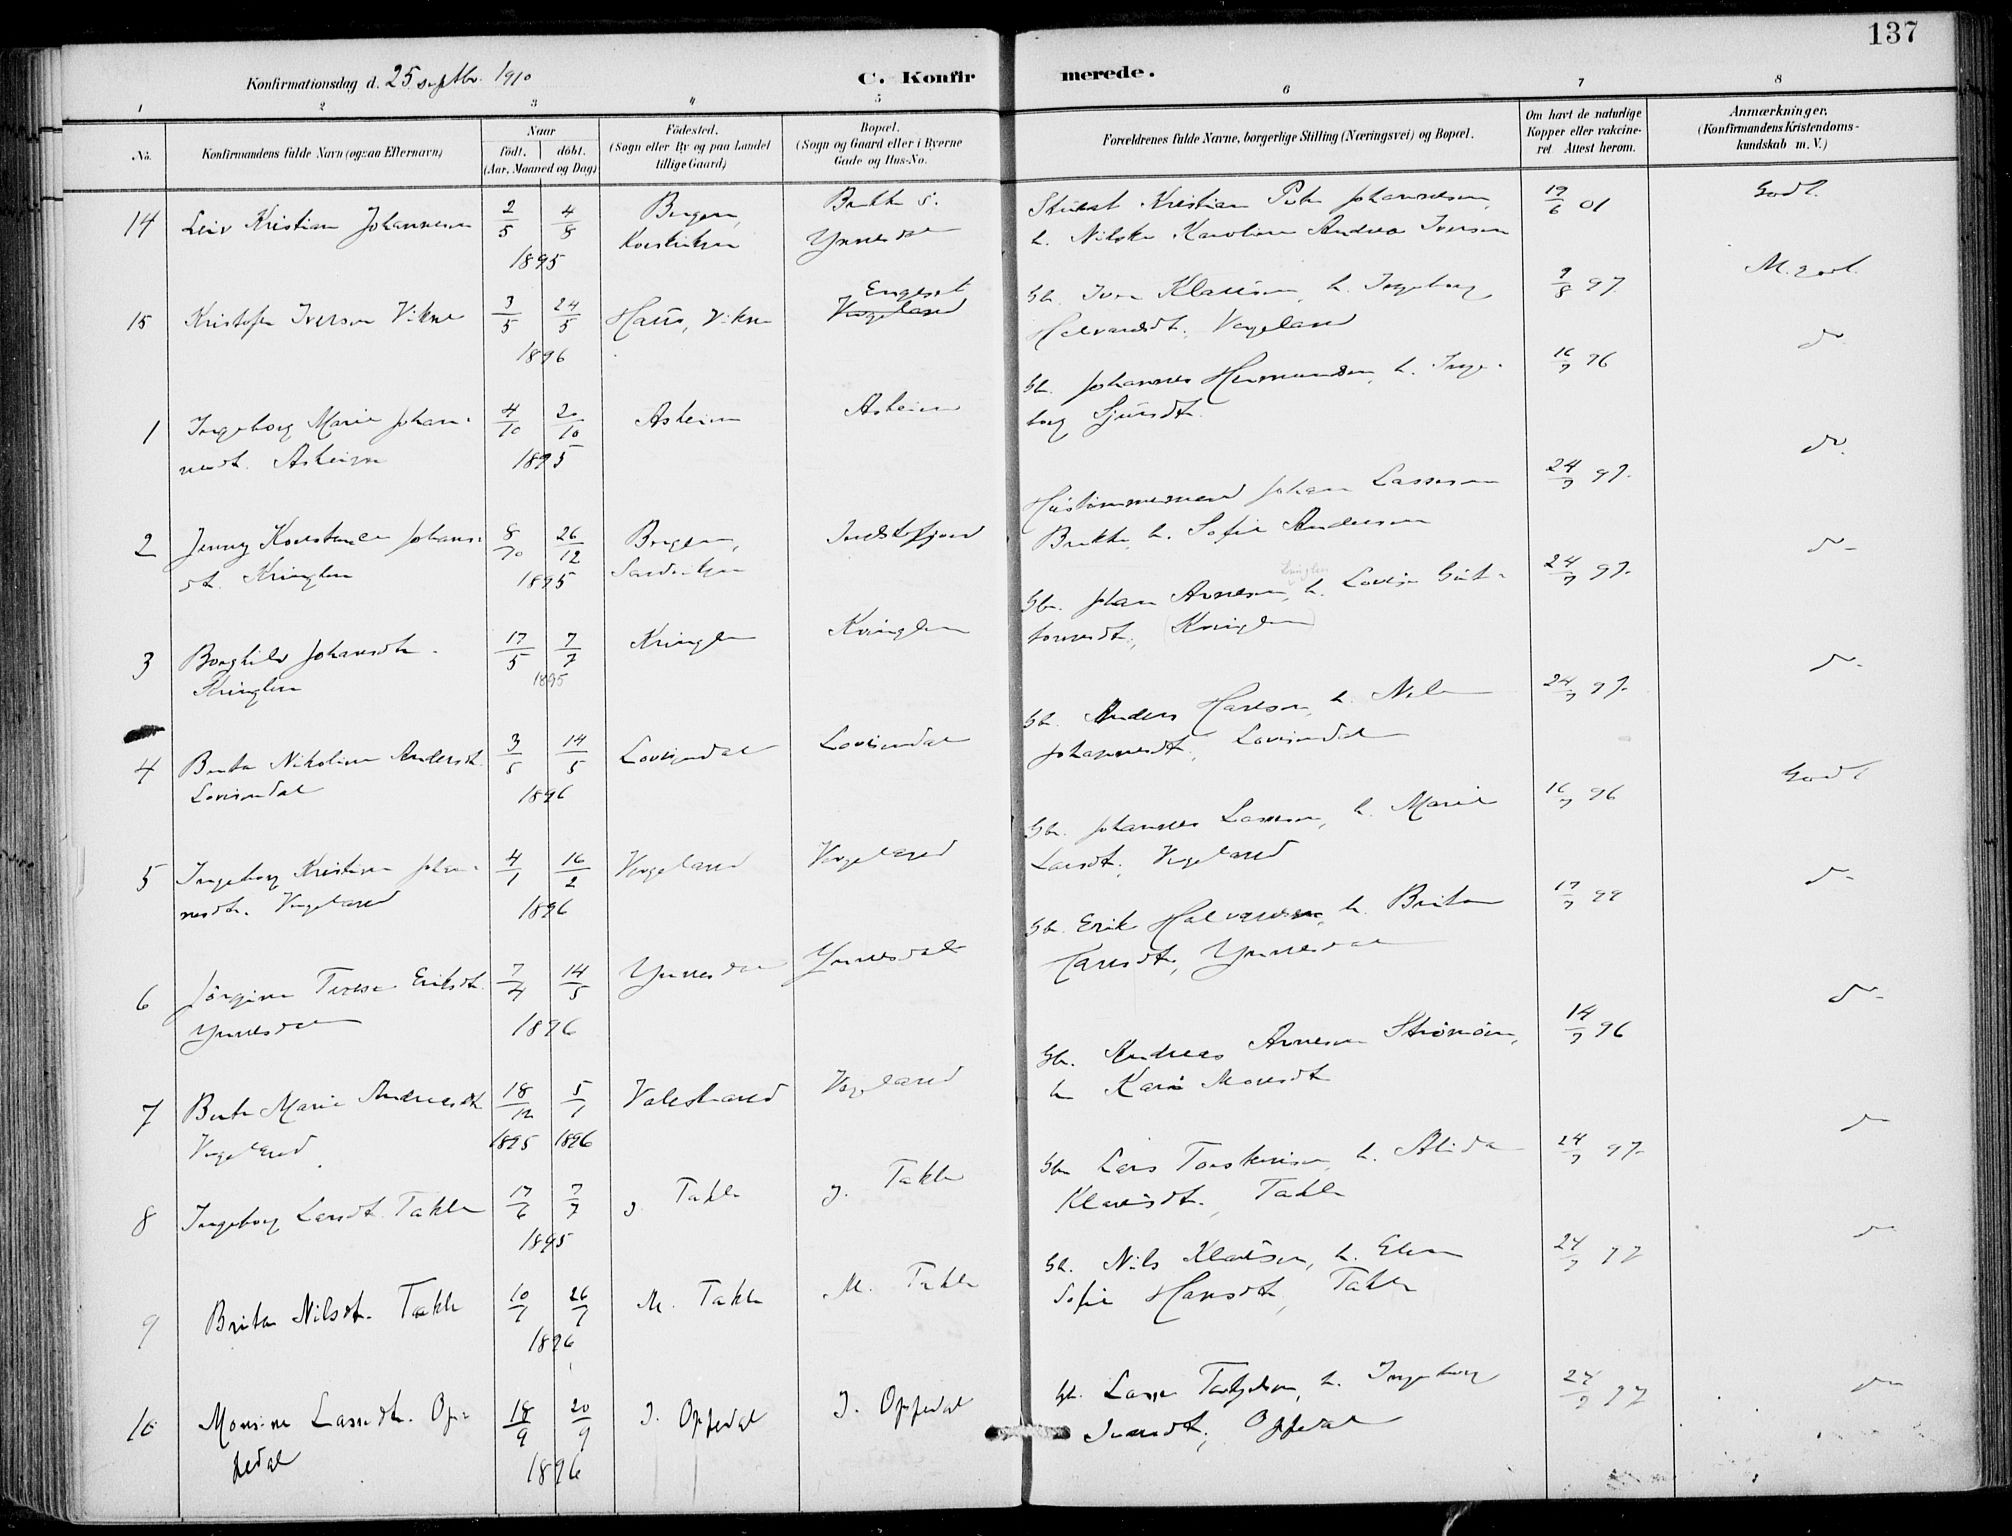 137
Konfirmationsdag d. 25 septbr. 1910
C. Konfirmerede.
1 2 3 4 5 6 7 8
No.
Konfirmandens fulde Navn (ogsaa Efternavn)
Naar
födt. döbt.
(Aar, Maaned og Dag)
Födested.
(Sogn eller By og paa Landet
tillige Gaard)
Bopæl.
(Sogn og Gaard eller i Byerne
Gade og Hus-No.
Forældrenes fulde Navne, borgerlige Stilling (Næringsvei) og Bopæl.
Om havt de naturlige
Kopper eller vakcine-
ret Attest herom.
Anmærkninger,
(Konfirmandens Kristendoms-
kundskab m. V.)
14 Leiv Kristian Johannesen 2/5 4/8 Bergen, Brekke s. Kristian Peter Johannesen, 19/6 01 Godt.
Korskirken Ynnesdal h. Karoline Andrea Iversen
1895
15 Kristofer Iverson Vikne 3/5 24/5 Haus, Vikne Engeset Vengeland Gbr. Iver Klausen, h. Ingeborg 9/8 97 M. godt.
Halvardsdt. Vengeland
1896
1 Ingeborg Marie Johan- 4/10 20/10 Asheim Asheim Gbr. Johannes Hermundsen, h. Inge- 16/7 96 do
nesdt. Asheim borg Sjursdt.
1895
2 Jenny Konstanse Johans- 8/10 26/12 Bergen, Instefjord Hustømmermand Johan Lassesen 24/7 97. do.
dt. Kringlen Sandviken Brekke, h. Sofie Andersen
1895
3 Borghild Johansdt. 17/5 7/7 Kringlen Kringlen Gbr. Johan Arnesen, h. Lovise Gut- 24/7 97. do
Kringlen tormsdt., (Kringlen)
1895
4 Berta Nikoline Andersdt. 3/5 14/5 Lovisendal Lovisendal Gbr. Anders Hansen, h. Nele 24/7 97. do
Lovisendal Johannesdt., Lovisendal
1896
5 Ingeborg Kristine Johan- 4/1 16/2 Vengeland Vengeland Gbr. Johannes Lassesen, h. Marie 16/7 96 Godt
nesdt. Vengeland Larsdt., Vengeland
1896
6 Jørgine Terese Eriksdt. 7/4 14/5 Ynnesdal Ynnesdal Gbr. Erik Halvardsen, h. Brita 17/7 99 do
Ynnesdal Hansdt., Ynnesdal
1896
7 Berte Marie Andreasdt. 18/12 5/1 Valestrand Vengeland Gbr. Andreas Arnesen Strømøen, 14/7 96 do
Vengeland h. Kari Monsdt
1895 1896
8 Ingeborg Larsdt. Takle 17/6 7/7 y. Takle y. Takle Gbr. Lars Torstensen, h. Alida 24/7 97. do
Klausdt., Takle
1895
9 Brita Nilsdt. Takle 10/7 26/7 M. Takle M. Takle Gbr. Nils Klausen, h. Elen 24/7 97 do
Sofie Hansdt., Takle
1896
10 Monsine Lassedt. Op- 18/9 20/9 I. Oppedal I. Oppedal Gbr. Lasse h. Ingeborg 24/7 97 do
pedal Oppedal
1896